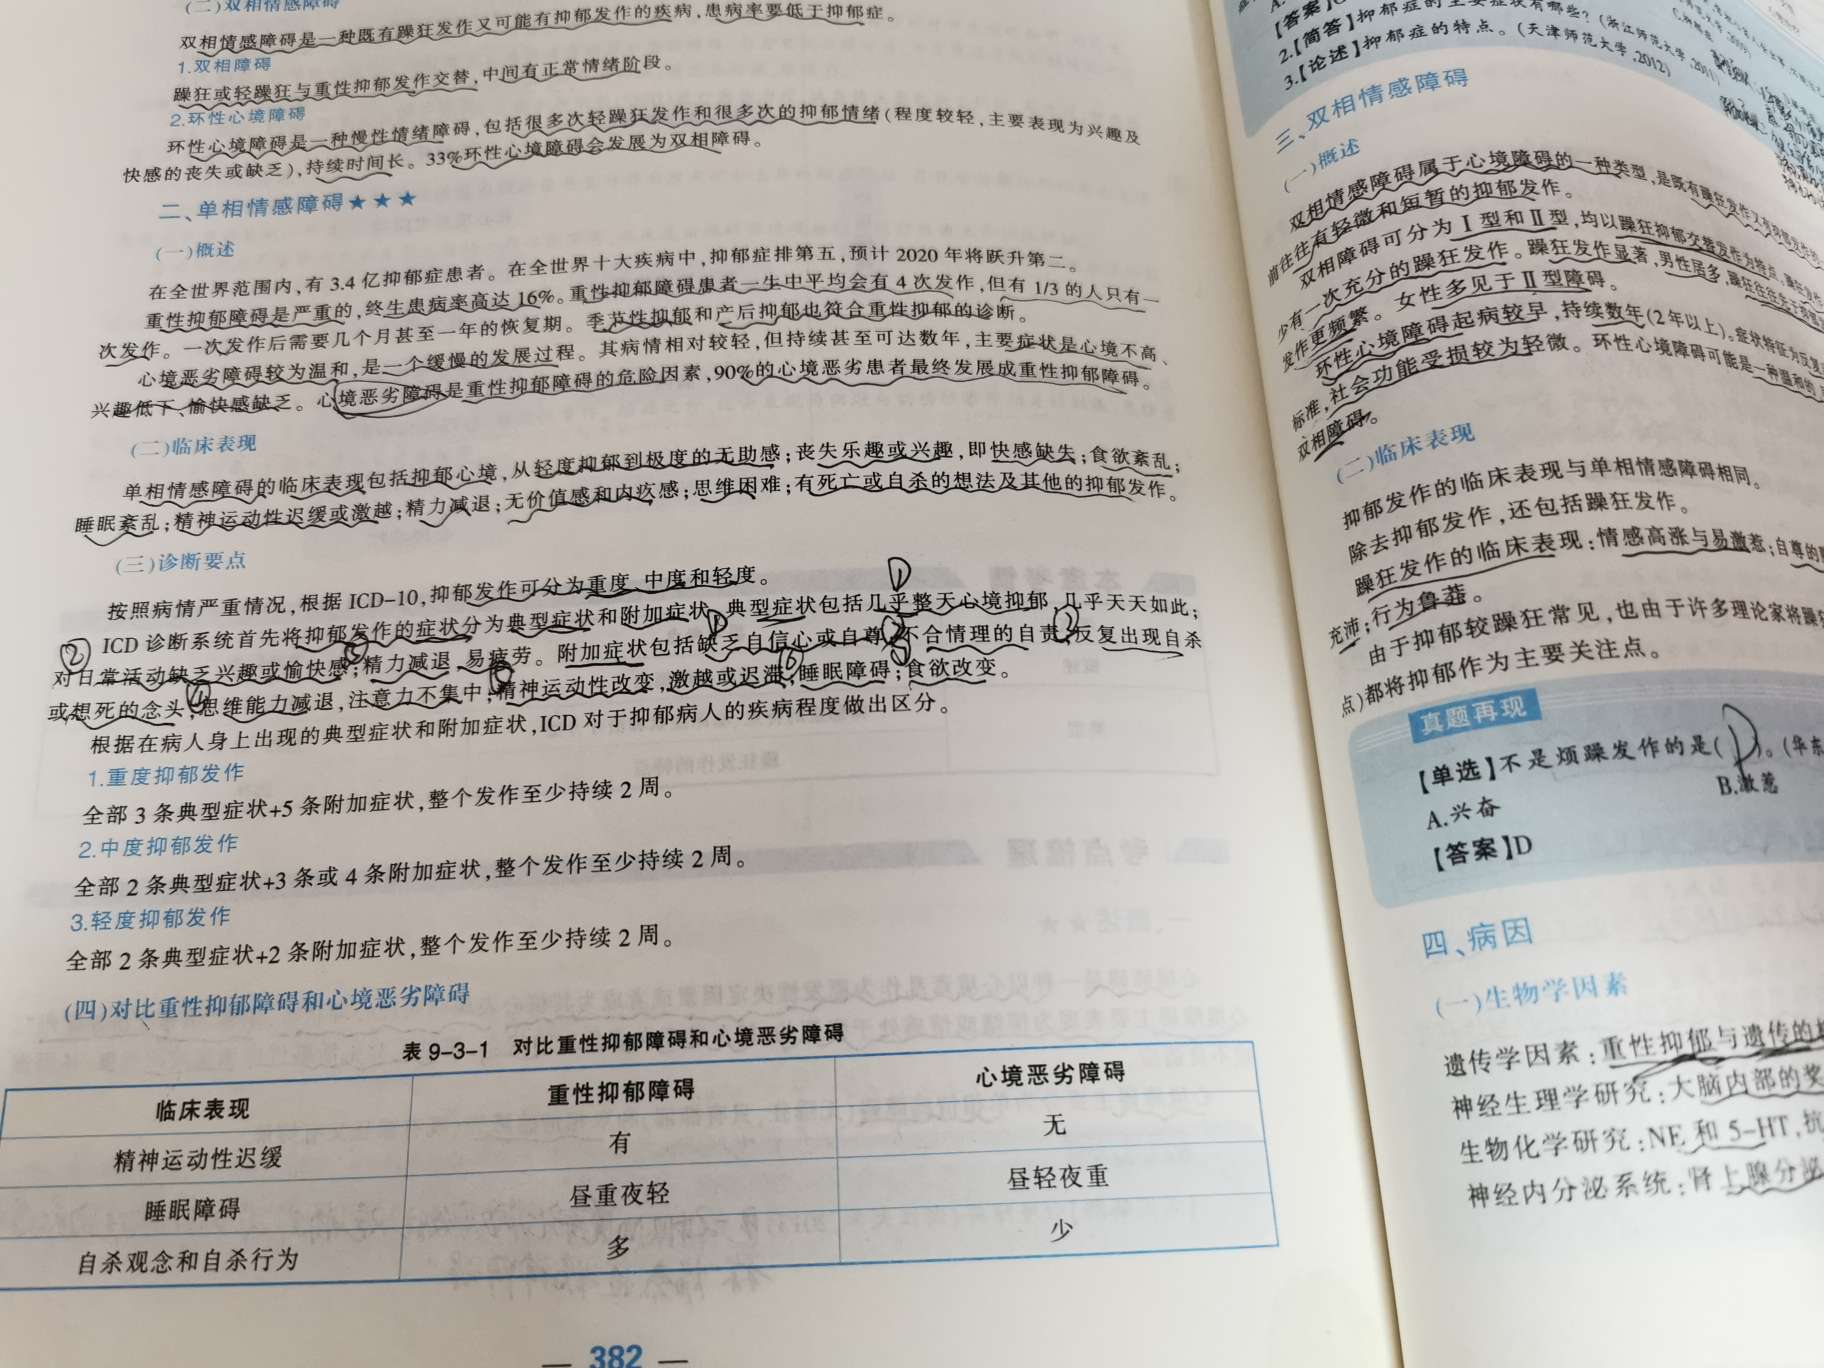 (二)双相情感障碍
双相情感障碍是一种既有躁狂发作又可能有抑郁发作的疾病,患病率要低于抑郁症。
1.双相障碍
躁狂或轻躁狂与重性抑郁发作交替,中间有正常情绪阶段。
2.环性心境障碍
环性心境障碍是一种慢性情绪障碍,包括很多次轻躁狂发作和很多次的抑郁情绪(程度较轻,主要表现为兴趣及
快感的丧失或缺乏),持续时间长。33%环性心境障碍会发展为双相障碍。
二、单相情感障碍★★★
(一)概述
在全世界范围内,有 3.4 亿抑郁症患者。在全世界十大疾病中,抑郁症排第五,预计 2020 年将跃升第二。
重性抑郁障碍是严重的,终生患病率高达 16%。重性抑郁障碍患者一生中平均会有 4 次发作,但有 1/3 的人只有一
次发作。一次发作后需要几个月甚至一年的恢复期。季节性抑郁和产后抑郁也符合重性抑郁的诊断。
心境恶劣障碍较为温和,是一个缓慢的发展过程。其病情相对较轻,但持续甚至可达数年,主要症状是心境不高、
兴趣低下、愉快感缺乏。心境恶劣障碍是重性抑郁障碍的危险因素,90%的心境恶劣患者最终发展成重性抑郁障碍。
(二)临床表现
单相情感障碍的临床表现包括抑郁心境,从轻度抑郁到极度的无助感;丧失乐趣或兴趣,即快感缺失;食欲紊乱;
睡眠紊乱;精神运动性迟缓或激越;精力减退;无价值感和内疚感;思维困难;有死亡或自杀的想法及其他的抑郁发作。
(三)诊断要点
按照病情严重情况,根据 ICD-10,抑郁发作可分为重度、中度和轻度。
①
ICD 诊断系统首先将抑郁发作的症状分为典型症状和附加症状。典型症状包括几乎整天心境抑郁,几乎天天如此;
②
对日常活动缺乏兴趣或愉快感;精力减退,易疲劳。附加症状包括缺乏自信心或自尊;不合情理的自责;反复出现自杀
或想死的念头;思维能力减退,注意力不集中;精神运动性改变,激越或迟滞;睡眠障碍;食欲改变。
根据在病人身上出现的典型症状和附加症状,ICD 对于抑郁病人的疾病程度做出区分。
1.重度抑郁发作
全部 3 条典型症状+5 条附加症状,整个发作至少持续 2 周。
2.中度抑郁发作
全部 2 条典型症状+3 条或 4 条附加症状,整个发作至少持续 2 周。
3.轻度抑郁发作
全部 2 条典型症状+2 条附加症状,整个发作至少持续 2 周。
(四)对比重性抑郁障碍和心境恶劣障碍
表 9-3-1 对比重性抑郁障碍和心境恶劣障碍
临床表现 重性抑郁障碍 心境恶劣障碍
精神运动性迟缓 有 无
睡眠障碍 昼重夜轻 昼轻夜重
自杀观念和自杀行为 多 少
— 382 —
【答案】
2.【简答】抑郁症的主要症状有哪些?(浙江师范大学,2011)
3.【论述】抑郁症的特点。(天津师范大学,2012)
三、双相情感障碍
(一)概述
双相情感障碍属于心境障碍的一种类型,是既有躁狂发作又有抑郁发作
前往往有轻微和短暂的抑郁发作。
双相障碍可分为Ⅰ型和Ⅱ型,均以躁狂抑郁交替发作为特点。
少有一次充分的躁狂发作。躁狂发作显著,男性居多,躁狂往往
发作更频繁。女性多见于Ⅱ型障碍。
环性心境障碍起病较早,持续数年(2 年以上)。症状特征为反复
标准,社会功能受损较为轻微。环性心境障碍可能是一种温和的
双相障碍。
(二)临床表现
抑郁发作的临床表现与单相情感障碍相同。
除去抑郁发作,还包括躁狂发作。
躁狂发作的临床表现:情感高涨与易激惹;自尊的
充沛;行为鲁莽。
由于抑郁较躁狂常见,也由于许多理论家将躁狂
点)都将抑郁作为主要关注点。
真题再现
【单选】不是烦躁发作的是(D)。(华东
A.兴奋 B.激惹
【答案】D
四、病因
(一)生物学因素
遗传学因素:重性抑郁与遗传的
神经生理学研究:大脑内部的奖
生物化学研究:NE 和 5-HT,抗
神经内分泌系统:肾上腺分泌